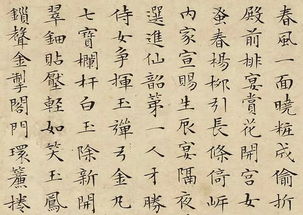 春風一面曉粧成偷折
殿前排宴賞花開宮女
蚤春楊柳引長條倚岸
内家宣賜生辰宴隔夜
選進仙韶第一人才勝
侍女爭揮玉彈弓金丸
七寶欄杆白玉除新開
翠鈿貼靨輕如笑玉鳳
鎖聲金掣閤門環簾捲